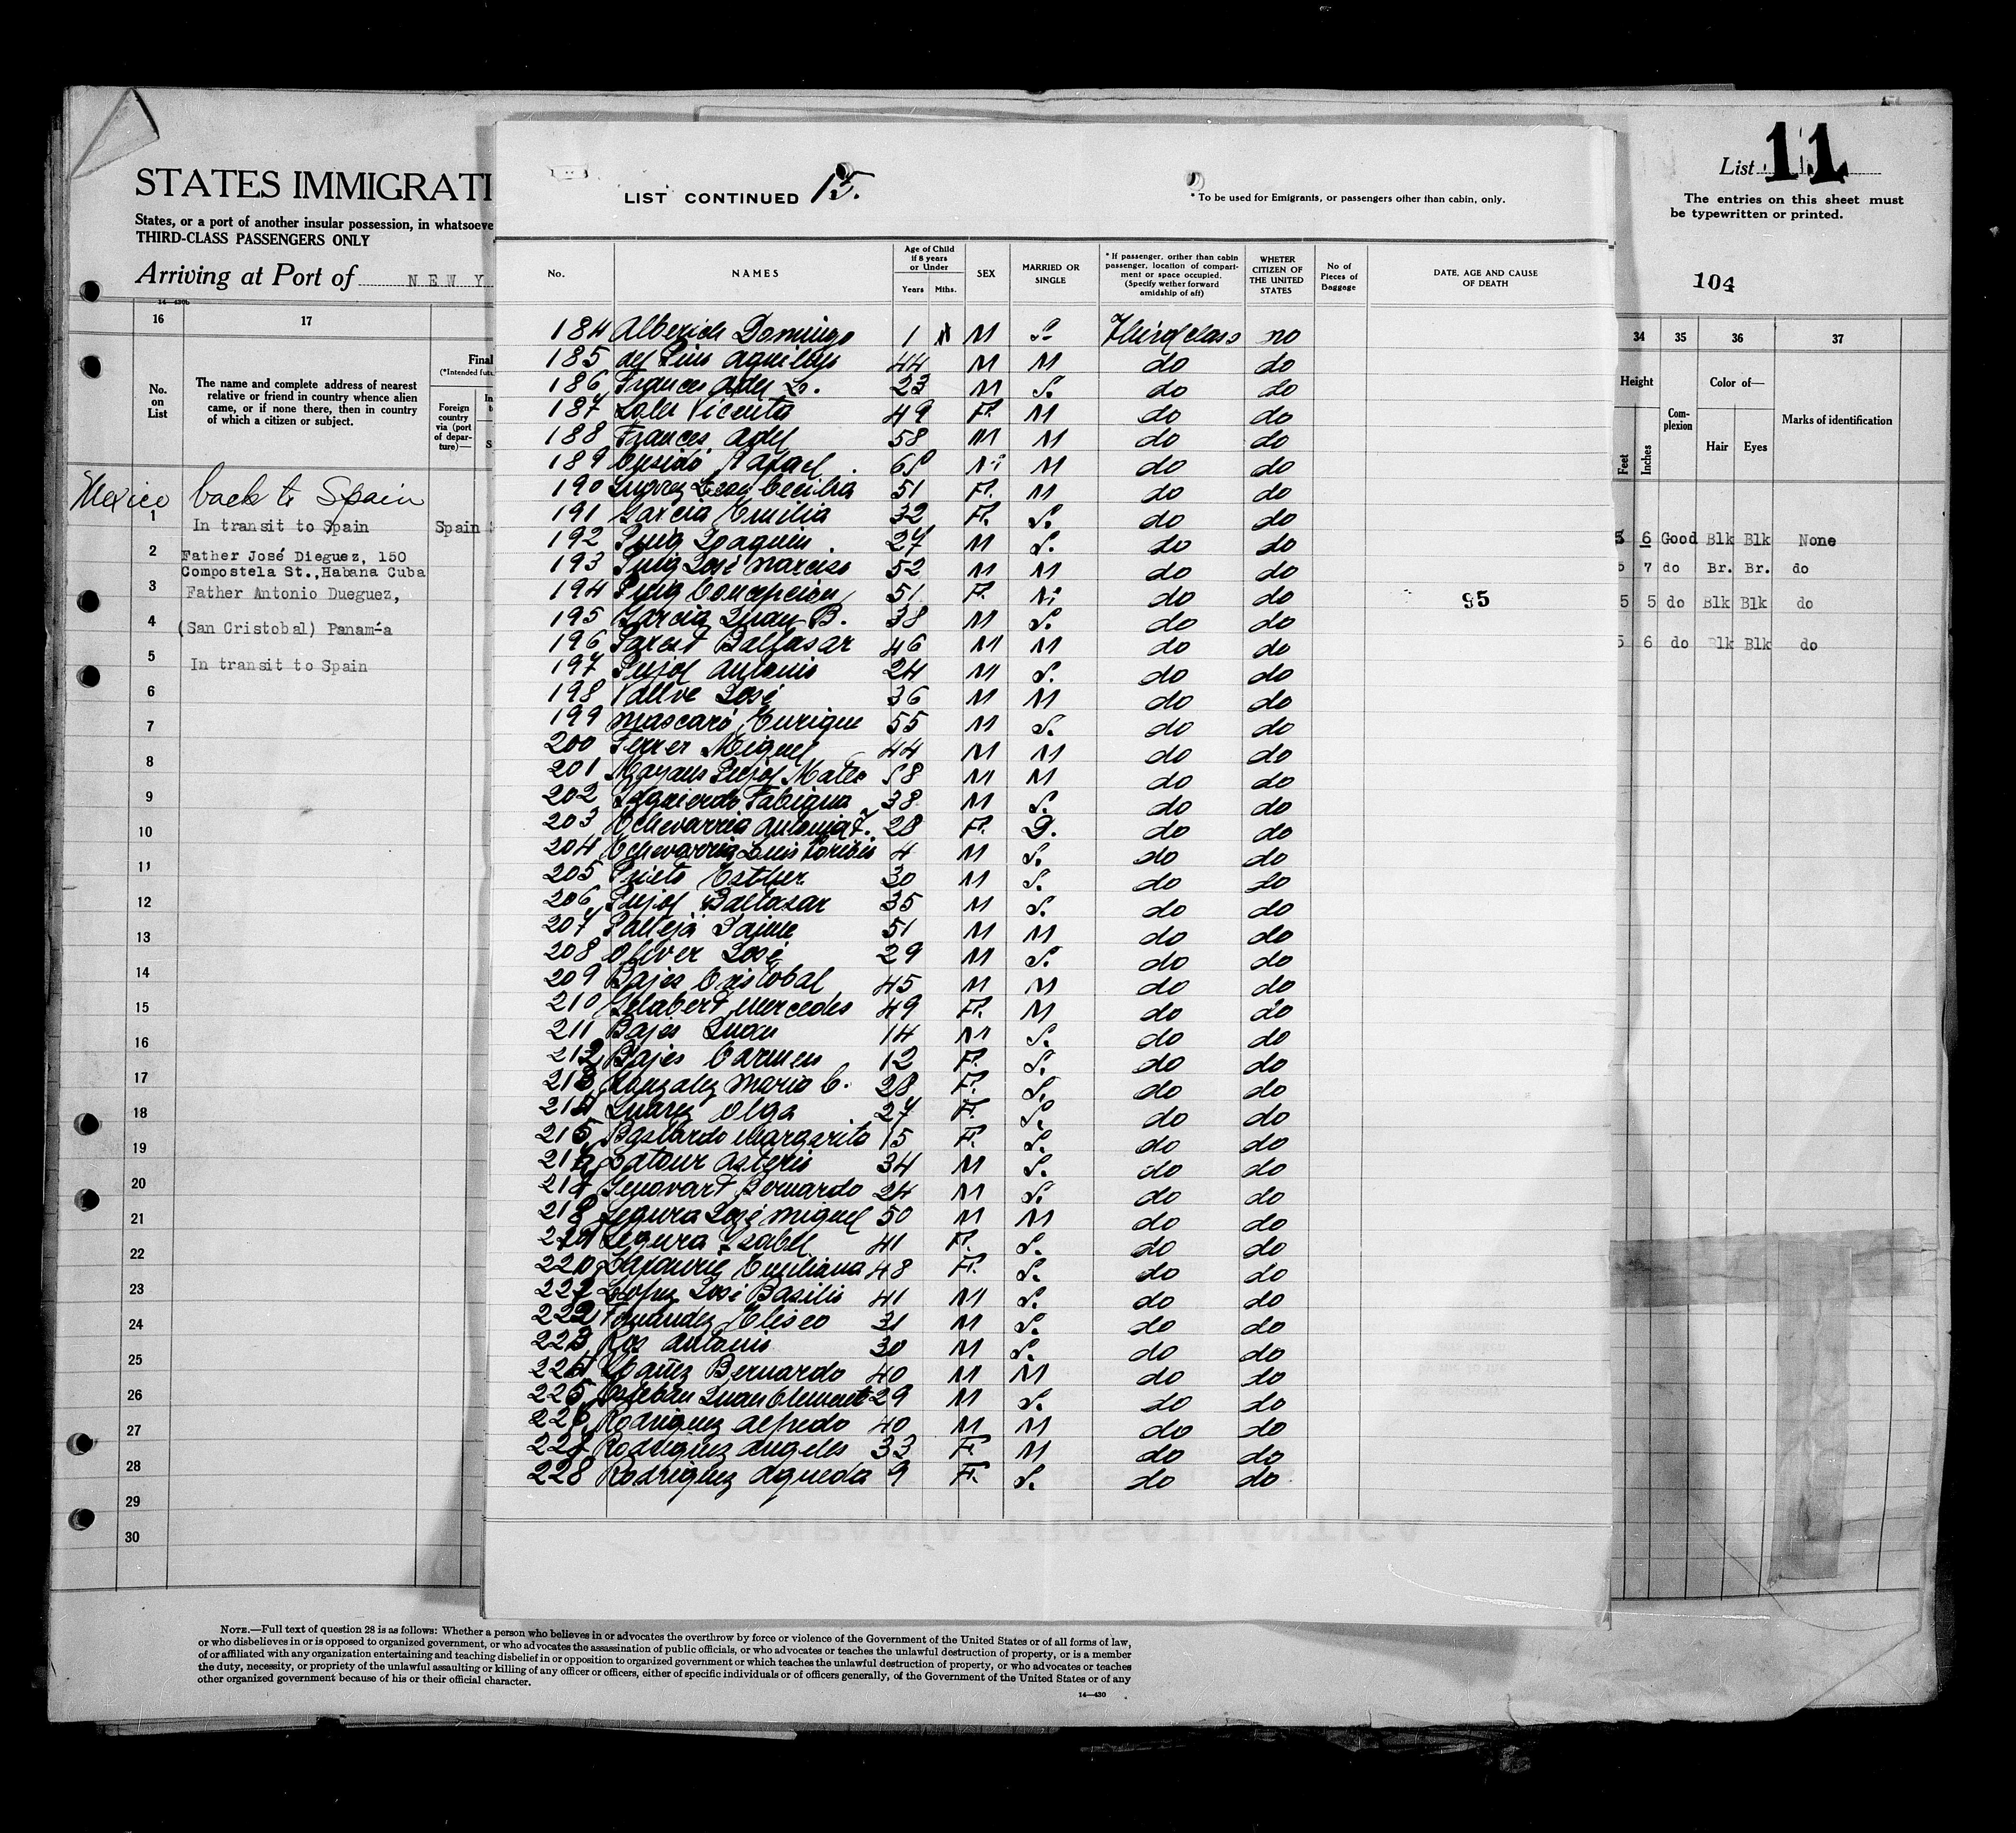 STATES IMMIGRATI
States, or a port of another insular possession, in whatsoeve
THIRD-CLASS PASSENGERS ONLY
Arriving at Port of NEW Y
14—430b
16 17
No. on List
The name and complete address of nearest
relative or friend in country whence alien
came, or if none there, then in country
of which a citizen or subject.
Final
(*Intended futu
Foreign
country
via (port
of depar-
ture)—
Mexico back to Spain
1 In transit to Spain Spain
2 Father José Dieguez, 150
Compostela St., Habana Cuba
3 Father Antonio Dueguez,
4 (San Cristobal) Panam-a
5 In transit to Spain
6
7
8
9
10
11
12
13
14
15
16
17
18
19
20
21
22
23
24
25
26
27
28
29
30
LIST CONTINUED 15.
* To be used for Emigrants, or passengers other than cabin, only.
No.
NAMES
Age of Child
if 8 years
or Under
Years Mths.
SEX
MARRIED OR
SINGLE
* If passenger, orither than cabin
passenger, location of compart-
ment or space occupied.
(Specify wether forward
amidship of aft)
WHETER
CITIZEN OF
THE UNITED
STATES
No of
Pieces of
Baggage
DATE, AGE AND CAUSE
OF DEATH
184 Alberich Domingo 1 M S. Third class no
185 del Pino 44 M M do do
186 Frances Adel L. 23 M S. do do
187 Vicenta 49 F. M do do
188 Frances Adel 58 M M do do
189 Cusidó Rafael M do do
190 Suarez Cecilia 51 F. M do do
191 Garcia Emilia 32 F. S. do do
192 Puig Joaquin 27 M S. do do
193 Puig José Narciso 52 M M do do
194 Puig Concepcion 51 F. M do do 95
195 Garcia Juan B. 38 M S. do do
196 Baltasar 46 M M do do
197 Pujol Antonio 24 M S. do do
198 Vallve José 36 M M do do
199 Mascaró Enrique 55 M S. do do
200 Ferrer Miguel 44 M M do do
201 Mayans Pujol Mateo 58 M M do do
202 Izquierdo 38 M S. do do
203 Echevarria Antonia F. 28 F. D. do do
204 Echevarria Luis 4 M S. do do
205 Prieto Esther 30 M S. do do
206 Pujol Baltasar 35 M S. do do
207 Pallejá Jaime 51 M M do do
208 Oliver José 29 M S. do do
209 Bajes Cristobal 45 M M do do
210 Gelabert Mercedes 49 F. M do do
211 Bajes Juan 14 M S. do do
212 Bajes Carmen 12 F. S. do do
213 Gonzalez Maria C. 28 F. S. do do
214 Suarez Olga 27 F. S. do do
215 Bastardo Margarita 15 F. S. do do
216 Latour Asterio 34 M S. do do
217 Genovart Bernardo 24 M S. do do
218 Segura José Miguel 50 M M do do
219 Segura Isabel 41 F. S. do do
220 Emiliana 48 F. S. do do
221 Lopez José Basilio 41 M S. do do
222 Fernandez Eliseo 31 M S. do do
223 Ros Antonio 30 M S. do do
224 Ybañez Bernardo 40 M M do do
225 Esteban Juan Clemente 29 M S. do do
226 Rodriguez Alfredo 40 M M do do
227 Rodriguez Angeles 33 F. M do do
228 Rodriguez Agueda 9 F. S. do do
List 11
The entries on this sheet must
be typewritten or printed.
104
34 35 36 37
Height
Feet Inches
Com-
plexion
Color of—
Hair Eyes
Marks of identification
5 6 Good Blk Blk None
5 7 do Br. Br. do
5 5 do Blk Blk do
5 6 do Blk Blk do
NOTE.—Full text of question 28 is as follows: Whether a person who believes in or advocates the overthrow by force or violence of the Government of the United States or of all forms of law,
or who disbelieves in or is opposed to organized government, or who advocates the assassination of public officials, or who advocates or teaches the unlawful destruction of property, or is a member
of or affiliated with any organization entertaining and teaching disbelief in or opposition to organized government or which teaches the unlawful destruction of property, or who advocates or teaches
the duty, necessity, or propriety of the unlawful assaulting or killing of any officer or officers, either of specific individuals or of officers generally, of the Government of the United States or of any
other organized government because of his or their official character.
14—430